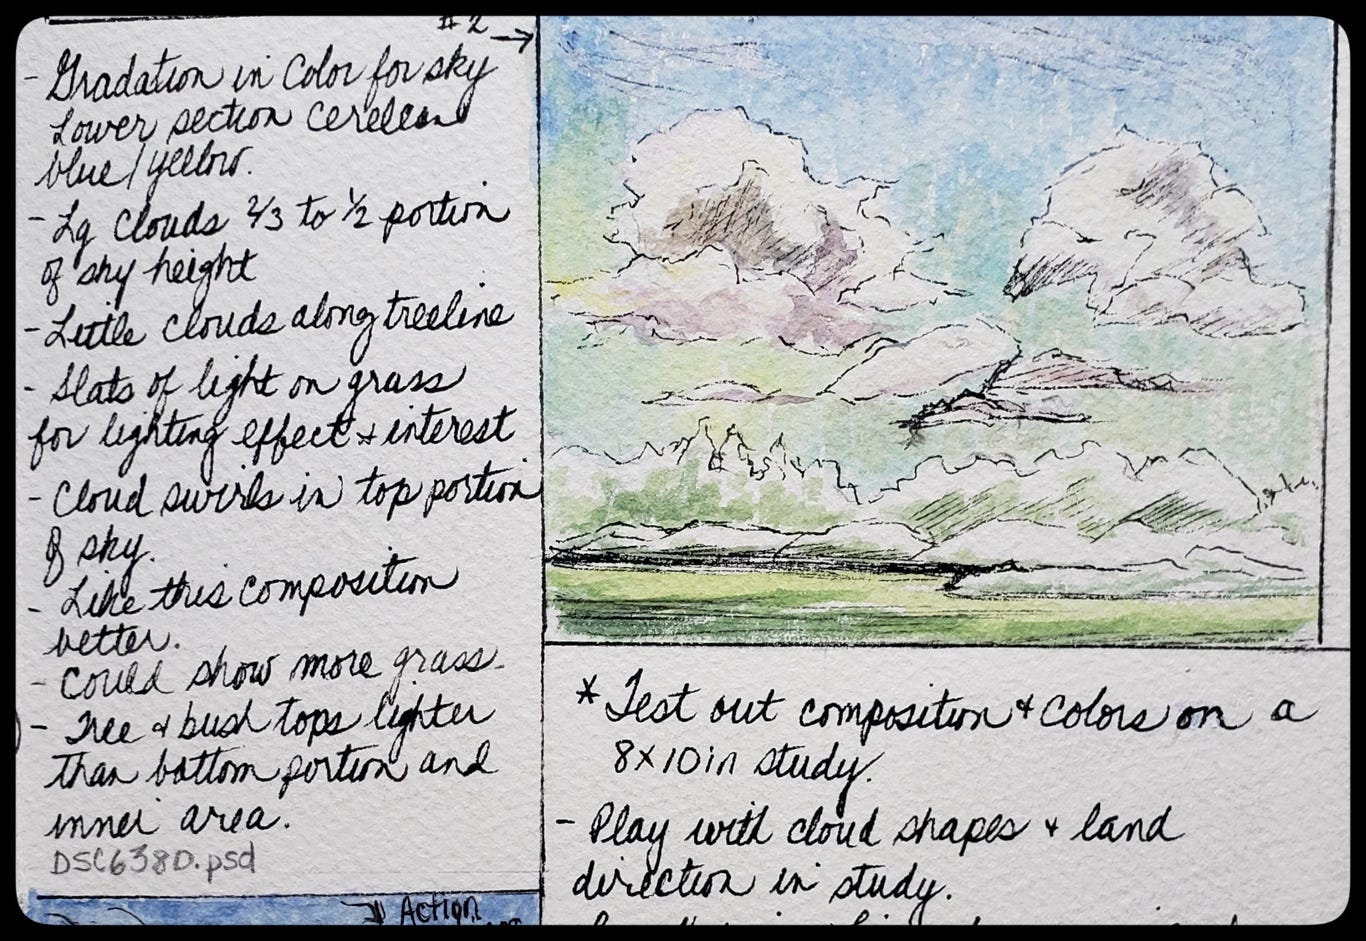 #2
- Gradation in Color for sky
Lower section cerelean
blue/yellow.
- Lg Clouds 2/3 to 1/2 portion
of sky height
- Little clouds along treeline
- Slats of light on grass
for lighting effect & interest
- Cloud swirls in top portion
of sky.
- Like this composition
better.
- Could show more grass.
- Tree & bush tops lighter
than bottom portion and
inner area.
DSC6380.psd
Action
* Test out composition & colors on a
8x10in study.
- Play with cloud shapes & land
direction in study.